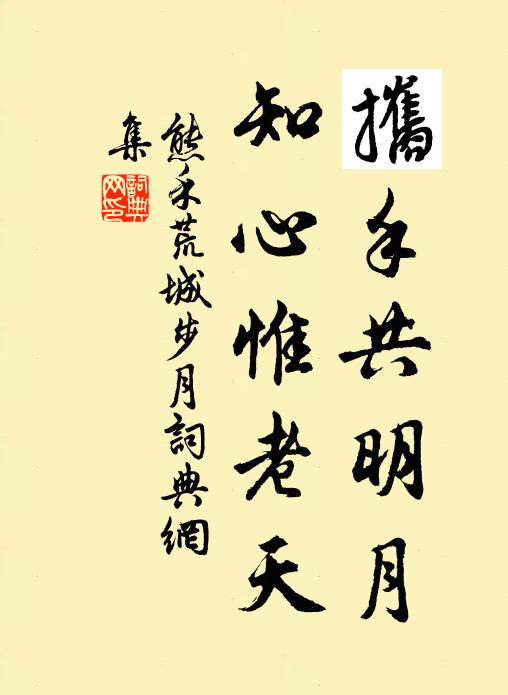 攜手共明月
知心惟老天
熊禾荒城步月詞典網
集
詞典網印